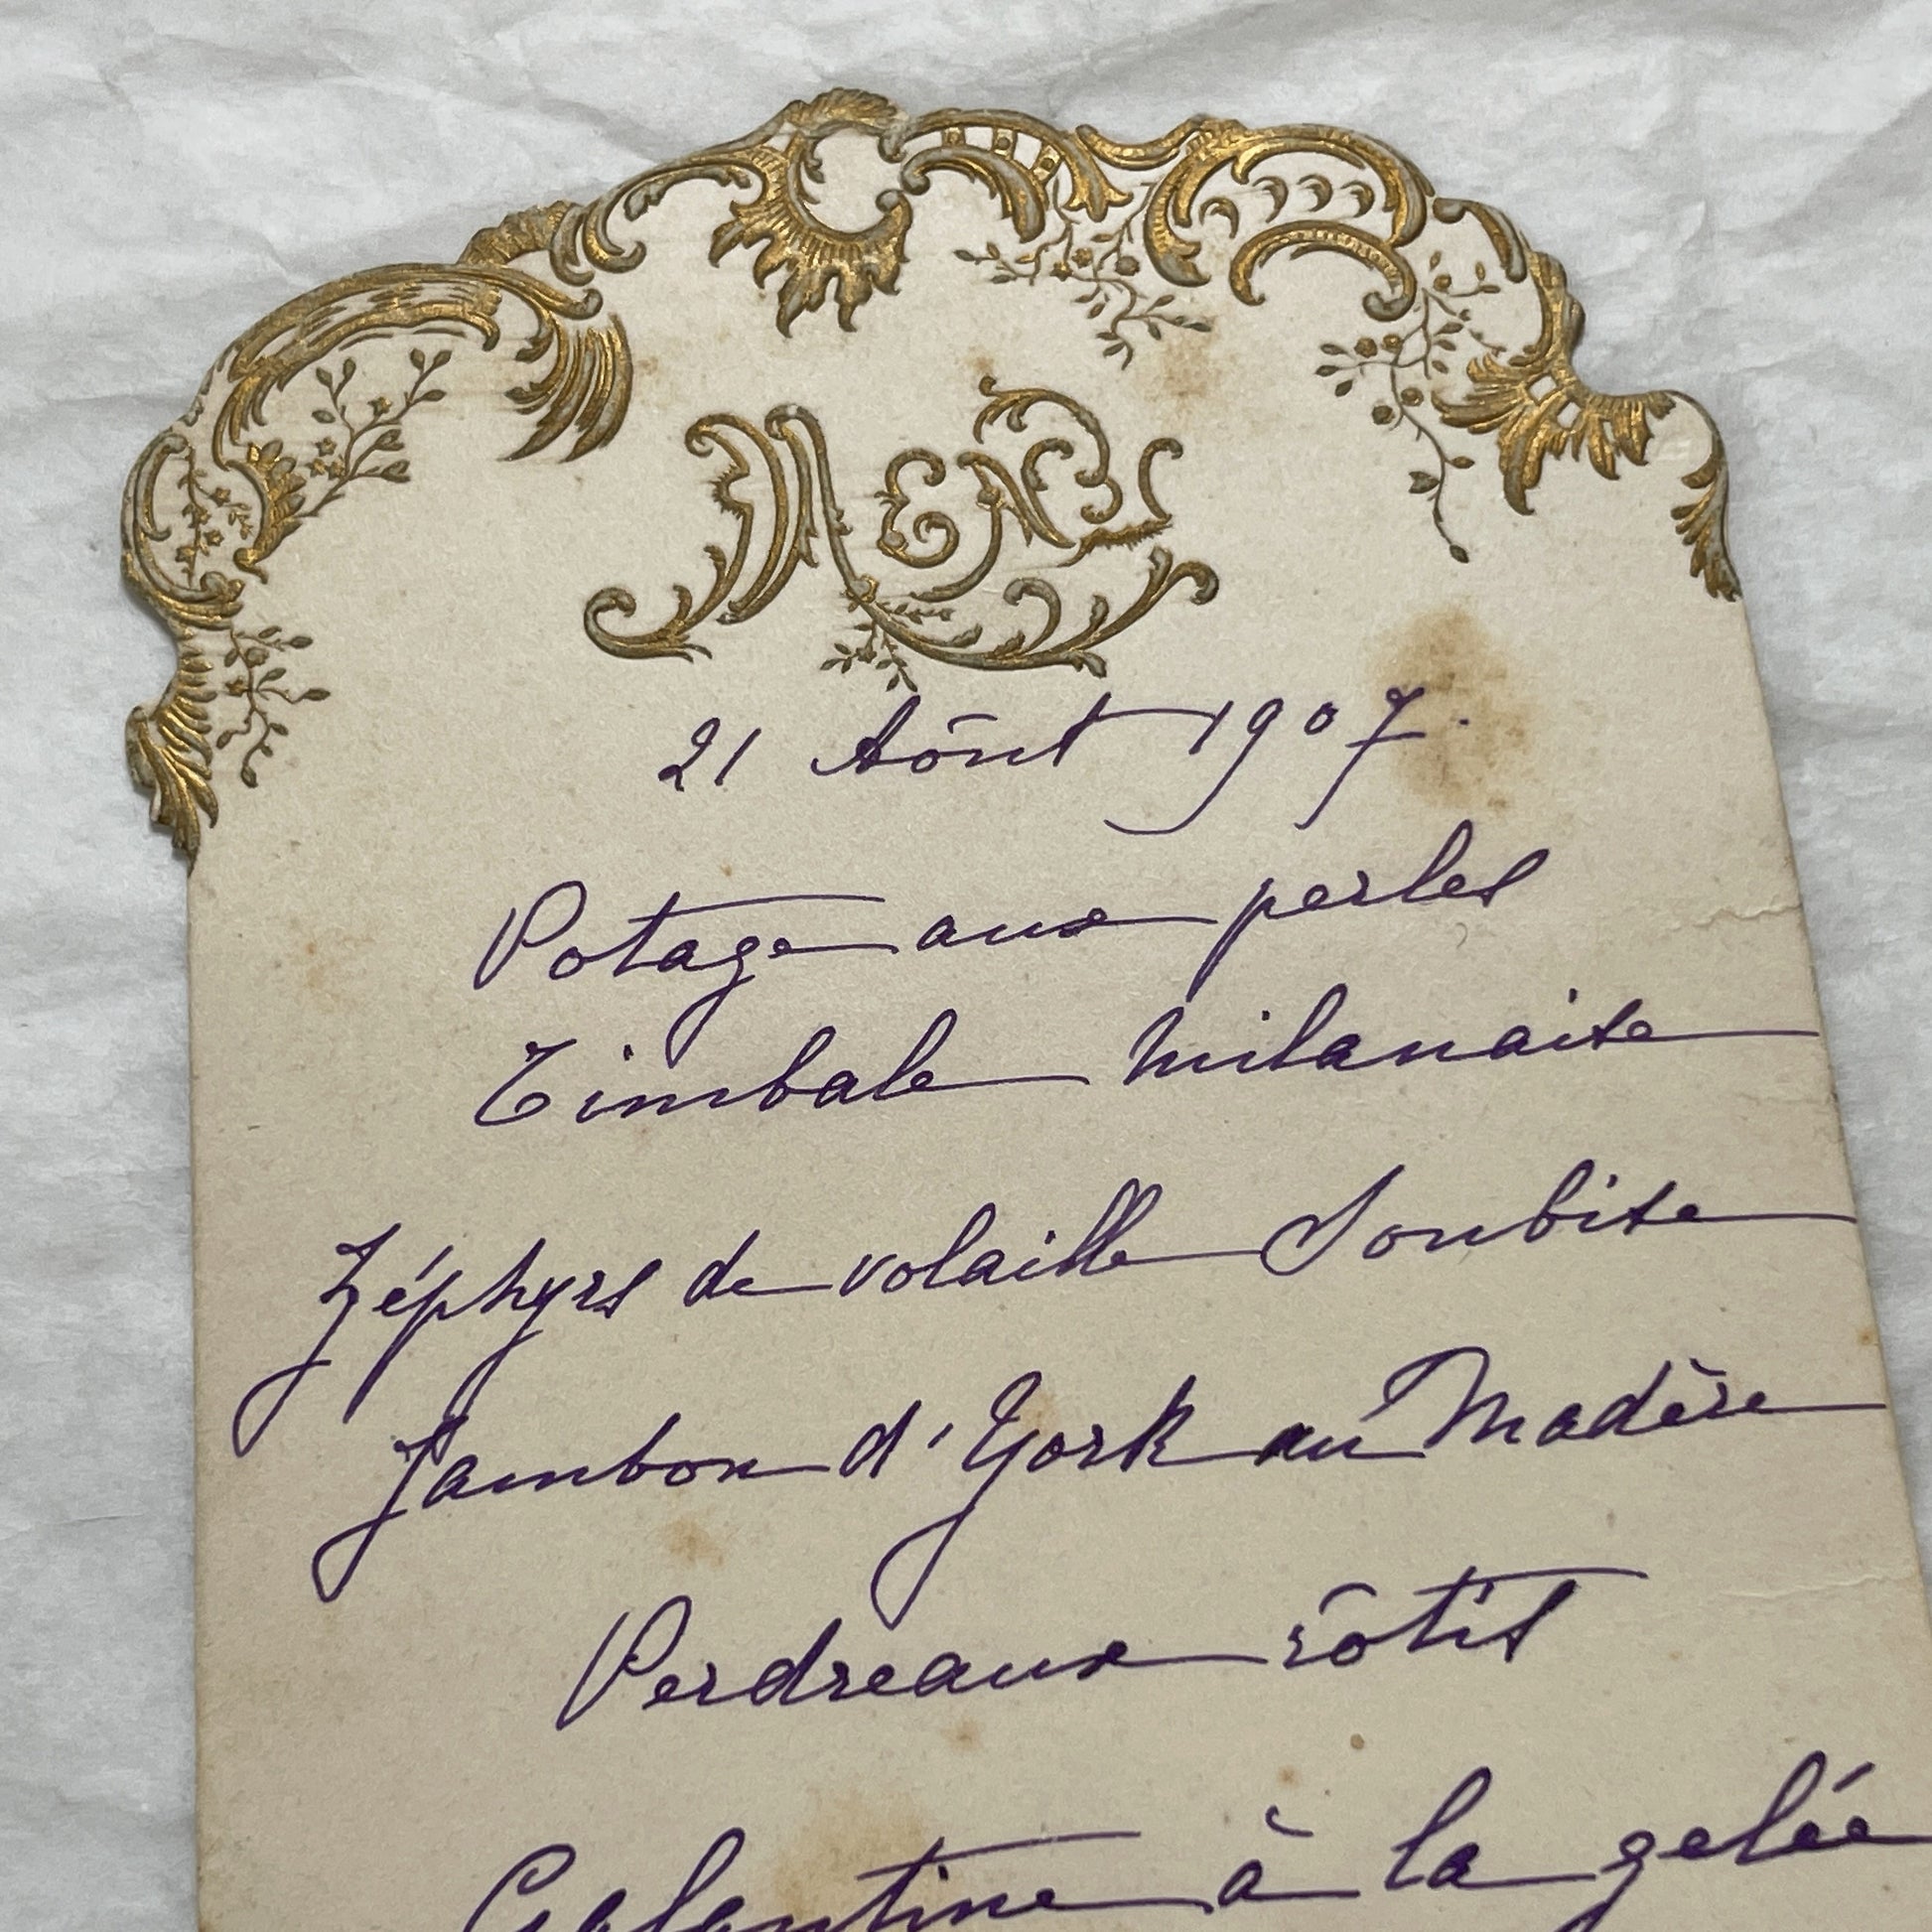 Menu
21 Aôut 1907.
Potage aux perles
Timbale milanaise
Zéphyrs de volaille Soubise
Jambon d'York au Madère
Perdreaux rôtis
Galantine à la gelée